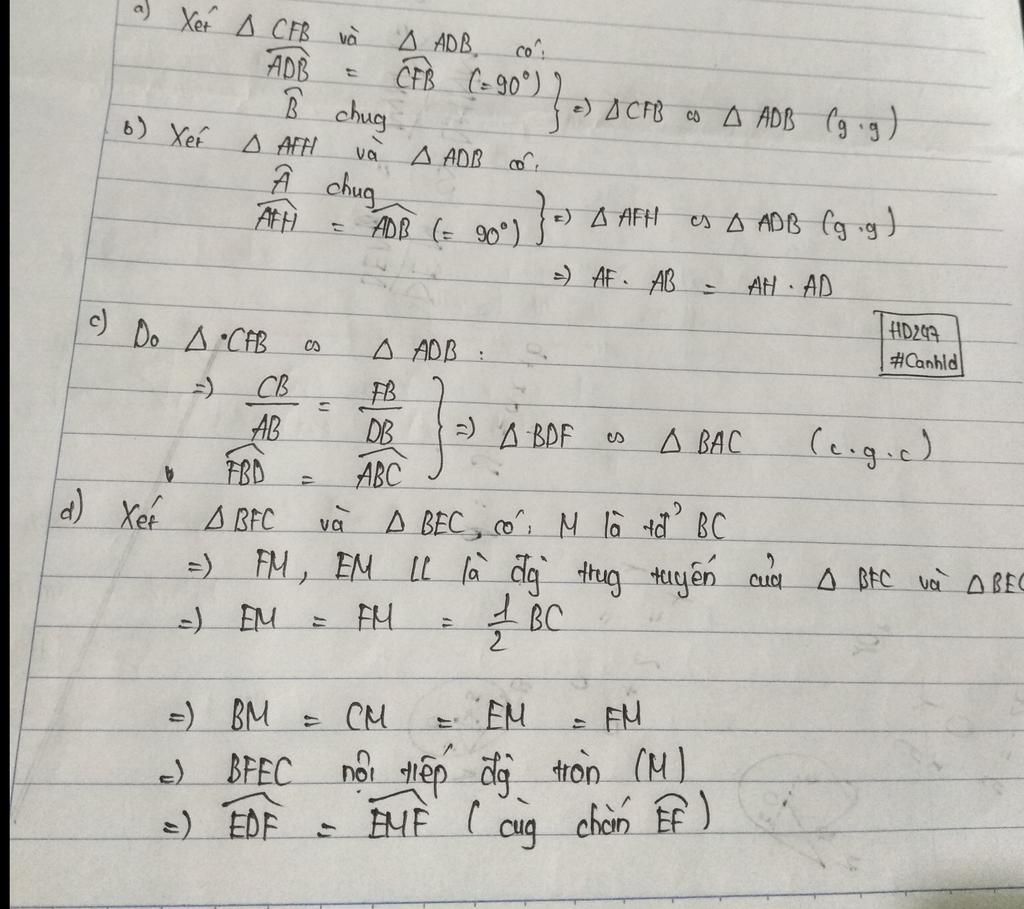 a) Xét Δ CFB và Δ ADB có:
ADB = CFB (=90°)
B chug
=) ΔCFB ∽ Δ ADB (g.g)
b) Xét Δ AFH và Δ ADB có:
A chug
AFH = ADB (= 90°)
=) Δ AFH ∽ Δ ADB (g.g)
=) AF. AB = AH . AD
HD247
#Canhld
c) Do Δ CFB ∽ Δ ADB :
=) CB/AB = FB/DB
FBD = ABC
=) Δ BDF ∽ Δ BAC (c.g.c)
d) Xét Δ BFC và Δ BEC, có: M là tđ' BC
=) FM, EM LL là đg trug tuyến của Δ BFC và Δ BEC
=) EM = FM = 1/2 BC
=) BM = CM = EM = FM
=) BFEC nội tiếp đg tròn (M)
=) EDF = EMF ( cùg chắn EF )